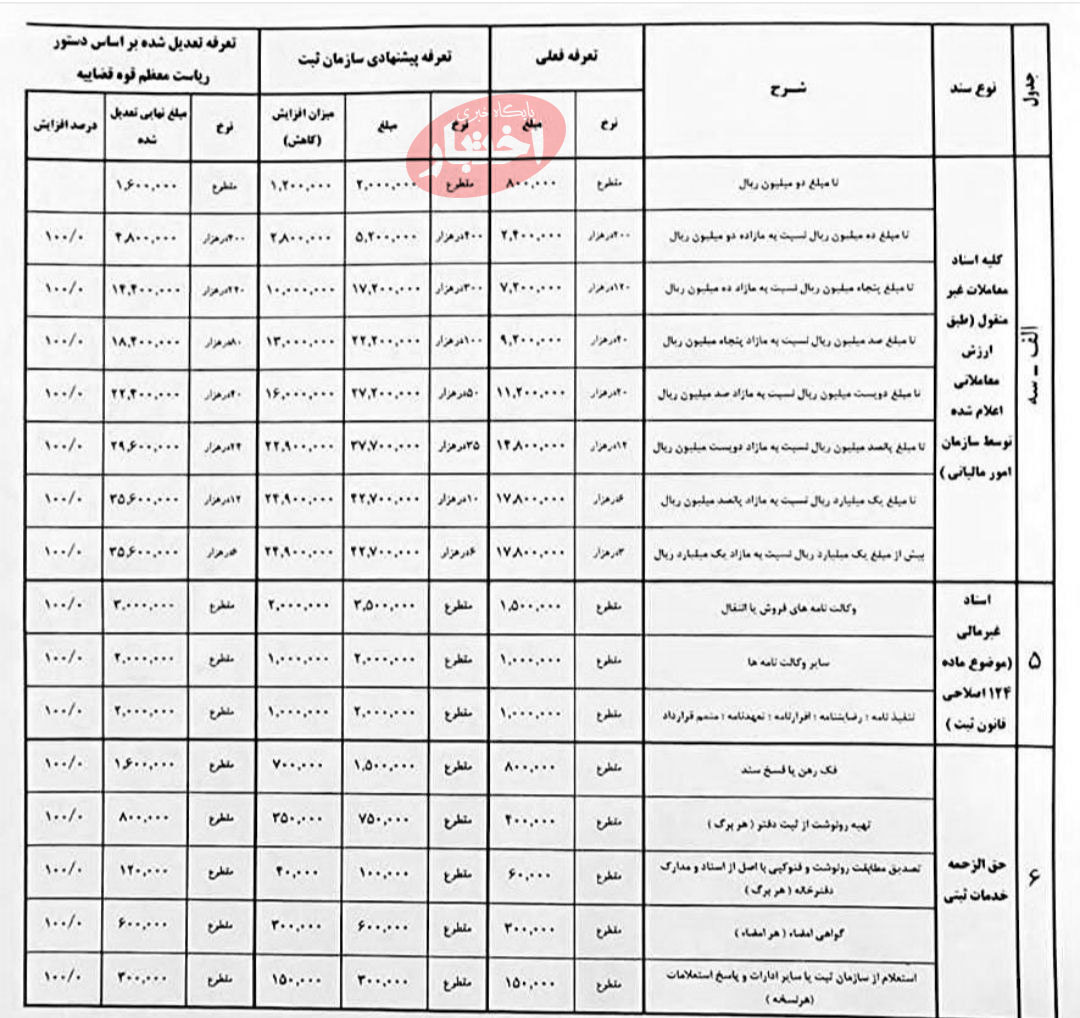 جدول
نوع سند
شرح
تعرفه فعلی
تعرفه پیشنهادی سازمان ثبت
تعرفه تعدیل شده بر اساس دستور
ریاست معظم قوه قضاییه
نرخ مبلغ نرخ مبلغ میزان افزایش (کاهش) نرخ مبلغ نهایی تعدیل شده درصد افزایش
پایگاه خبری
اختبار
الف - سه
کلیه اسناد
معاملات غیر
منقول (طبق
ارزش
معاملاتی
اعلام شده
توسط سازمان
امور مالیاتی)
تا مبلغ دو میلیون ریال مقطوع ۸۰۰,۰۰۰ مقطوع ۲,۰۰۰,۰۰۰ ۱,۲۰۰,۰۰۰ مقطوع ۱,۶۰۰,۰۰۰
تا مبلغ ده میلیون ریال نسبت به مازاده دو میلیون ریال ۲۰۰درهزار ۲,۴۰۰,۰۰۰ ۴۰۰درهزار ۵,۲۰۰,۰۰۰ ۲,۸۰۰,۰۰۰ ۴۰۰درهزار ۴,۸۰۰,۰۰۰ ۱۰۰/۰
تا مبلغ پنجاه میلیون ریال نسبت به مازاد ده میلیون ریال ۱۲۰درهزار ۷,۲۰۰,۰۰۰ ۳۰۰درهزار ۱۷,۲۰۰,۰۰۰ ۱۰,۰۰۰,۰۰۰ ۲۴۰درهزار ۱۴,۴۰۰,۰۰۰ ۱۰۰/۰
تا مبلغ صد میلیون ریال نسبت به مازاد پنجاه میلیون ریال ۴۰درهزار ۹,۲۰۰,۰۰۰ ۱۰۰درهزار ۲۲,۲۰۰,۰۰۰ ۱۳,۰۰۰,۰۰۰ ۸۰درهزار ۱۸,۴۰۰,۰۰۰ ۱۰۰/۰
تا مبلغ دویست میلیون ریال نسبت به مازاد صد میلیون ریال ۲۰درهزار ۱۱,۲۰۰,۰۰۰ ۵۰درهزار ۲۷,۲۰۰,۰۰۰ ۱۶,۰۰۰,۰۰۰ ۴۰درهزار ۲۲,۴۰۰,۰۰۰ ۱۰۰/۰
تا مبلغ پانصد میلیون ریال نسبت به مازاد دویست میلیون ریال ۱۲درهزار ۱۴,۸۰۰,۰۰۰ ۳۵درهزار ۳۷,۷۰۰,۰۰۰ ۲۲,۹۰۰,۰۰۰ ۲۴درهزار ۲۹,۶۰۰,۰۰۰ ۱۰۰/۰
تا مبلغ یک میلیارد ریال نسبت به مازاد پانصد میلیون ریال ۶درهزار ۱۷,۸۰۰,۰۰۰ ۱۰درهزار ۴۲,۷۰۰,۰۰۰ ۲۴,۹۰۰,۰۰۰ ۱۲درهزار ۳۵,۶۰۰,۰۰۰ ۱۰۰/۰
بیش از مبلغ یک میلیارد ریال نسبت به مازاد یک میلیارد ریال ۳درهزار ۱۷,۸۰۰,۰۰۰ ۶درهزار ۴۲,۷۰۰,۰۰۰ ۲۴,۹۰۰,۰۰۰ درهزار ۳۵,۶۰۰,۰۰۰ ۱۰۰/۰
۵
اسناد
غیرمالی
(موضوع ماده
۱۲۴ اصلاحی
قانون ثبت )
وکالت نامه های فروش یا انتقال مقطوع ۱,۵۰۰,۰۰۰ مقطوع ۳,۵۰۰,۰۰۰ ۲,۰۰۰,۰۰۰ مقطوع ۳,۰۰۰,۰۰۰ ۱۰۰/۰
سایر وکالت نامه ها مقطوع ۱,۰۰۰,۰۰۰ مقطوع ۲,۰۰۰,۰۰۰ ۱,۰۰۰,۰۰۰ مقطوع ۲,۰۰۰,۰۰۰ ۱۰۰/۰
تنفیذ نامه ؛ رضایتنامه ؛ اقرارنامه ؛ تعهدنامه ؛ متمم قرارداد مقطوع ۱,۰۰۰,۰۰۰ مقطوع ۲,۰۰۰,۰۰۰ ۱,۰۰۰,۰۰۰ مقطوع ۲,۰۰۰,۰۰۰ ۱۰۰/۰
۶
حق الزحمه
خدمات ثبتی
فک رهن یا فسخ سند مقطوع ۸۰۰,۰۰۰ مقطوع ۱,۵۰۰,۰۰۰ ۷۰۰,۰۰۰ مقطوع ۱,۶۰۰,۰۰۰ ۱۰۰/۰
تهیه رونوشت از ثبت دفتر ( هر برگ ) مقطوع ۴۰۰,۰۰۰ مقطوع ۷۵۰,۰۰۰ ۳۵۰,۰۰۰ مقطوع ۸۰۰,۰۰۰ ۱۰۰/۰
تصدیق مطابقت رونوشت و فتوکپی با اصل از اسناد و مدارک
دفترخانه ( هر برگ ) مقطوع ۶۰,۰۰۰ مقطوع ۱۰۰,۰۰۰ ۴۰,۰۰۰ مقطوع ۱۲۰,۰۰۰ ۱۰۰/۰
گواهی امضاء ( هر امضاء ) مقطوع ۳۰۰,۰۰۰ مقطوع ۶۰۰,۰۰۰ ۳۰۰,۰۰۰ مقطوع ۶۰۰,۰۰۰ ۱۰۰/۰
استعلام از سازمان ثبت یا سایر ادارات و پاسخ استعلامات
(هرنسخه ) مقطوع ۱۵۰,۰۰۰ مقطوع ۳۰۰,۰۰۰ ۱۵۰,۰۰۰ مقطوع ۳۰۰,۰۰۰ ۱۰۰/۰